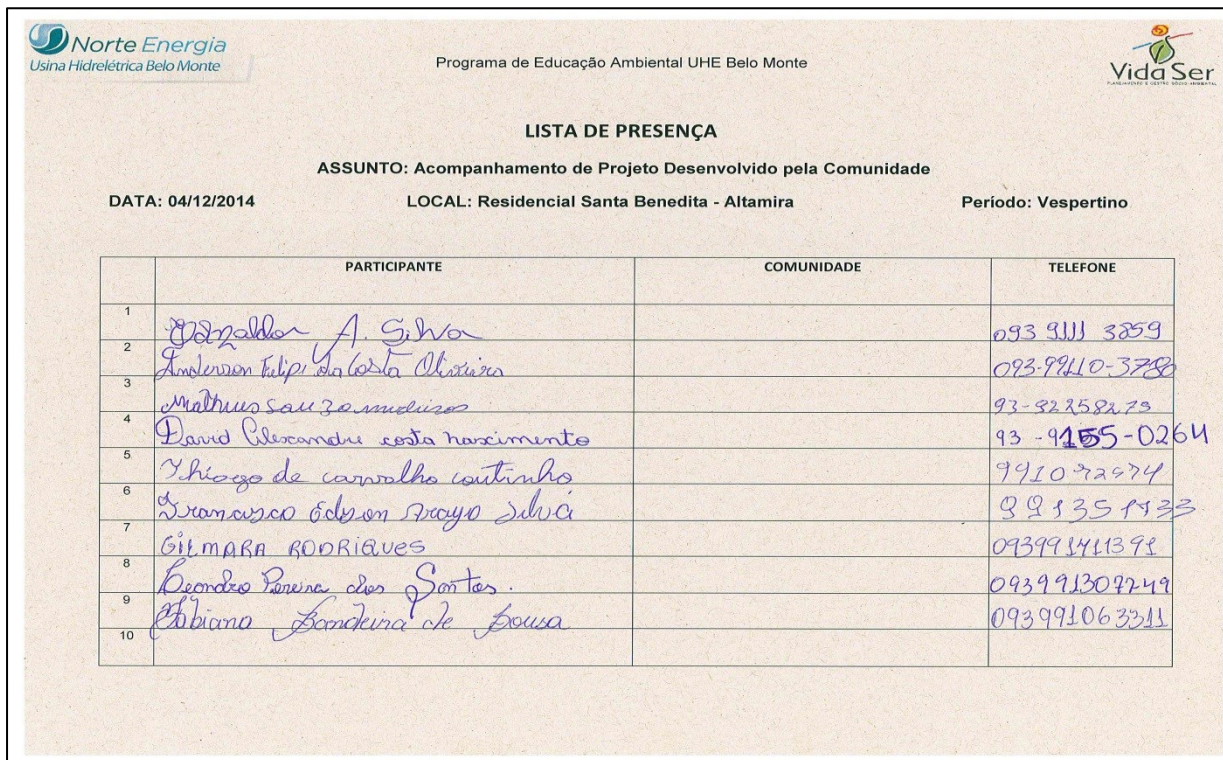 Norte Energia
Usina Hidrelétrica Belo Monte
Programa de Educação Ambiental UHE Belo Monte
Vida Ser
LISTA DE PRESENÇA
ASSUNTO: Acompanhamento de Projeto Desenvolvido pela Comunidade
DATA: 04/12/2014 LOCAL: Residencial Santa Benedita - Altamira Período: Vespertino
PARTICIPANTE COMUNIDADE TELEFONE
1 A. Silva 093 9111 3859
2 Anderson Felipi da Costa Oliveira 093-99110-3786
3 Matheus Souza 
4 David Alexandre costa nascimento 93-9155-0264
5 Thiogo de carvalho coutinho
6 Francisco Edson Silva
7 GILMARA RODRIGUES 093991411391
8 Leandro Pereira dos Santos. 093991307249
9 Fabiana Bandeira de Sousa 093991063311
10